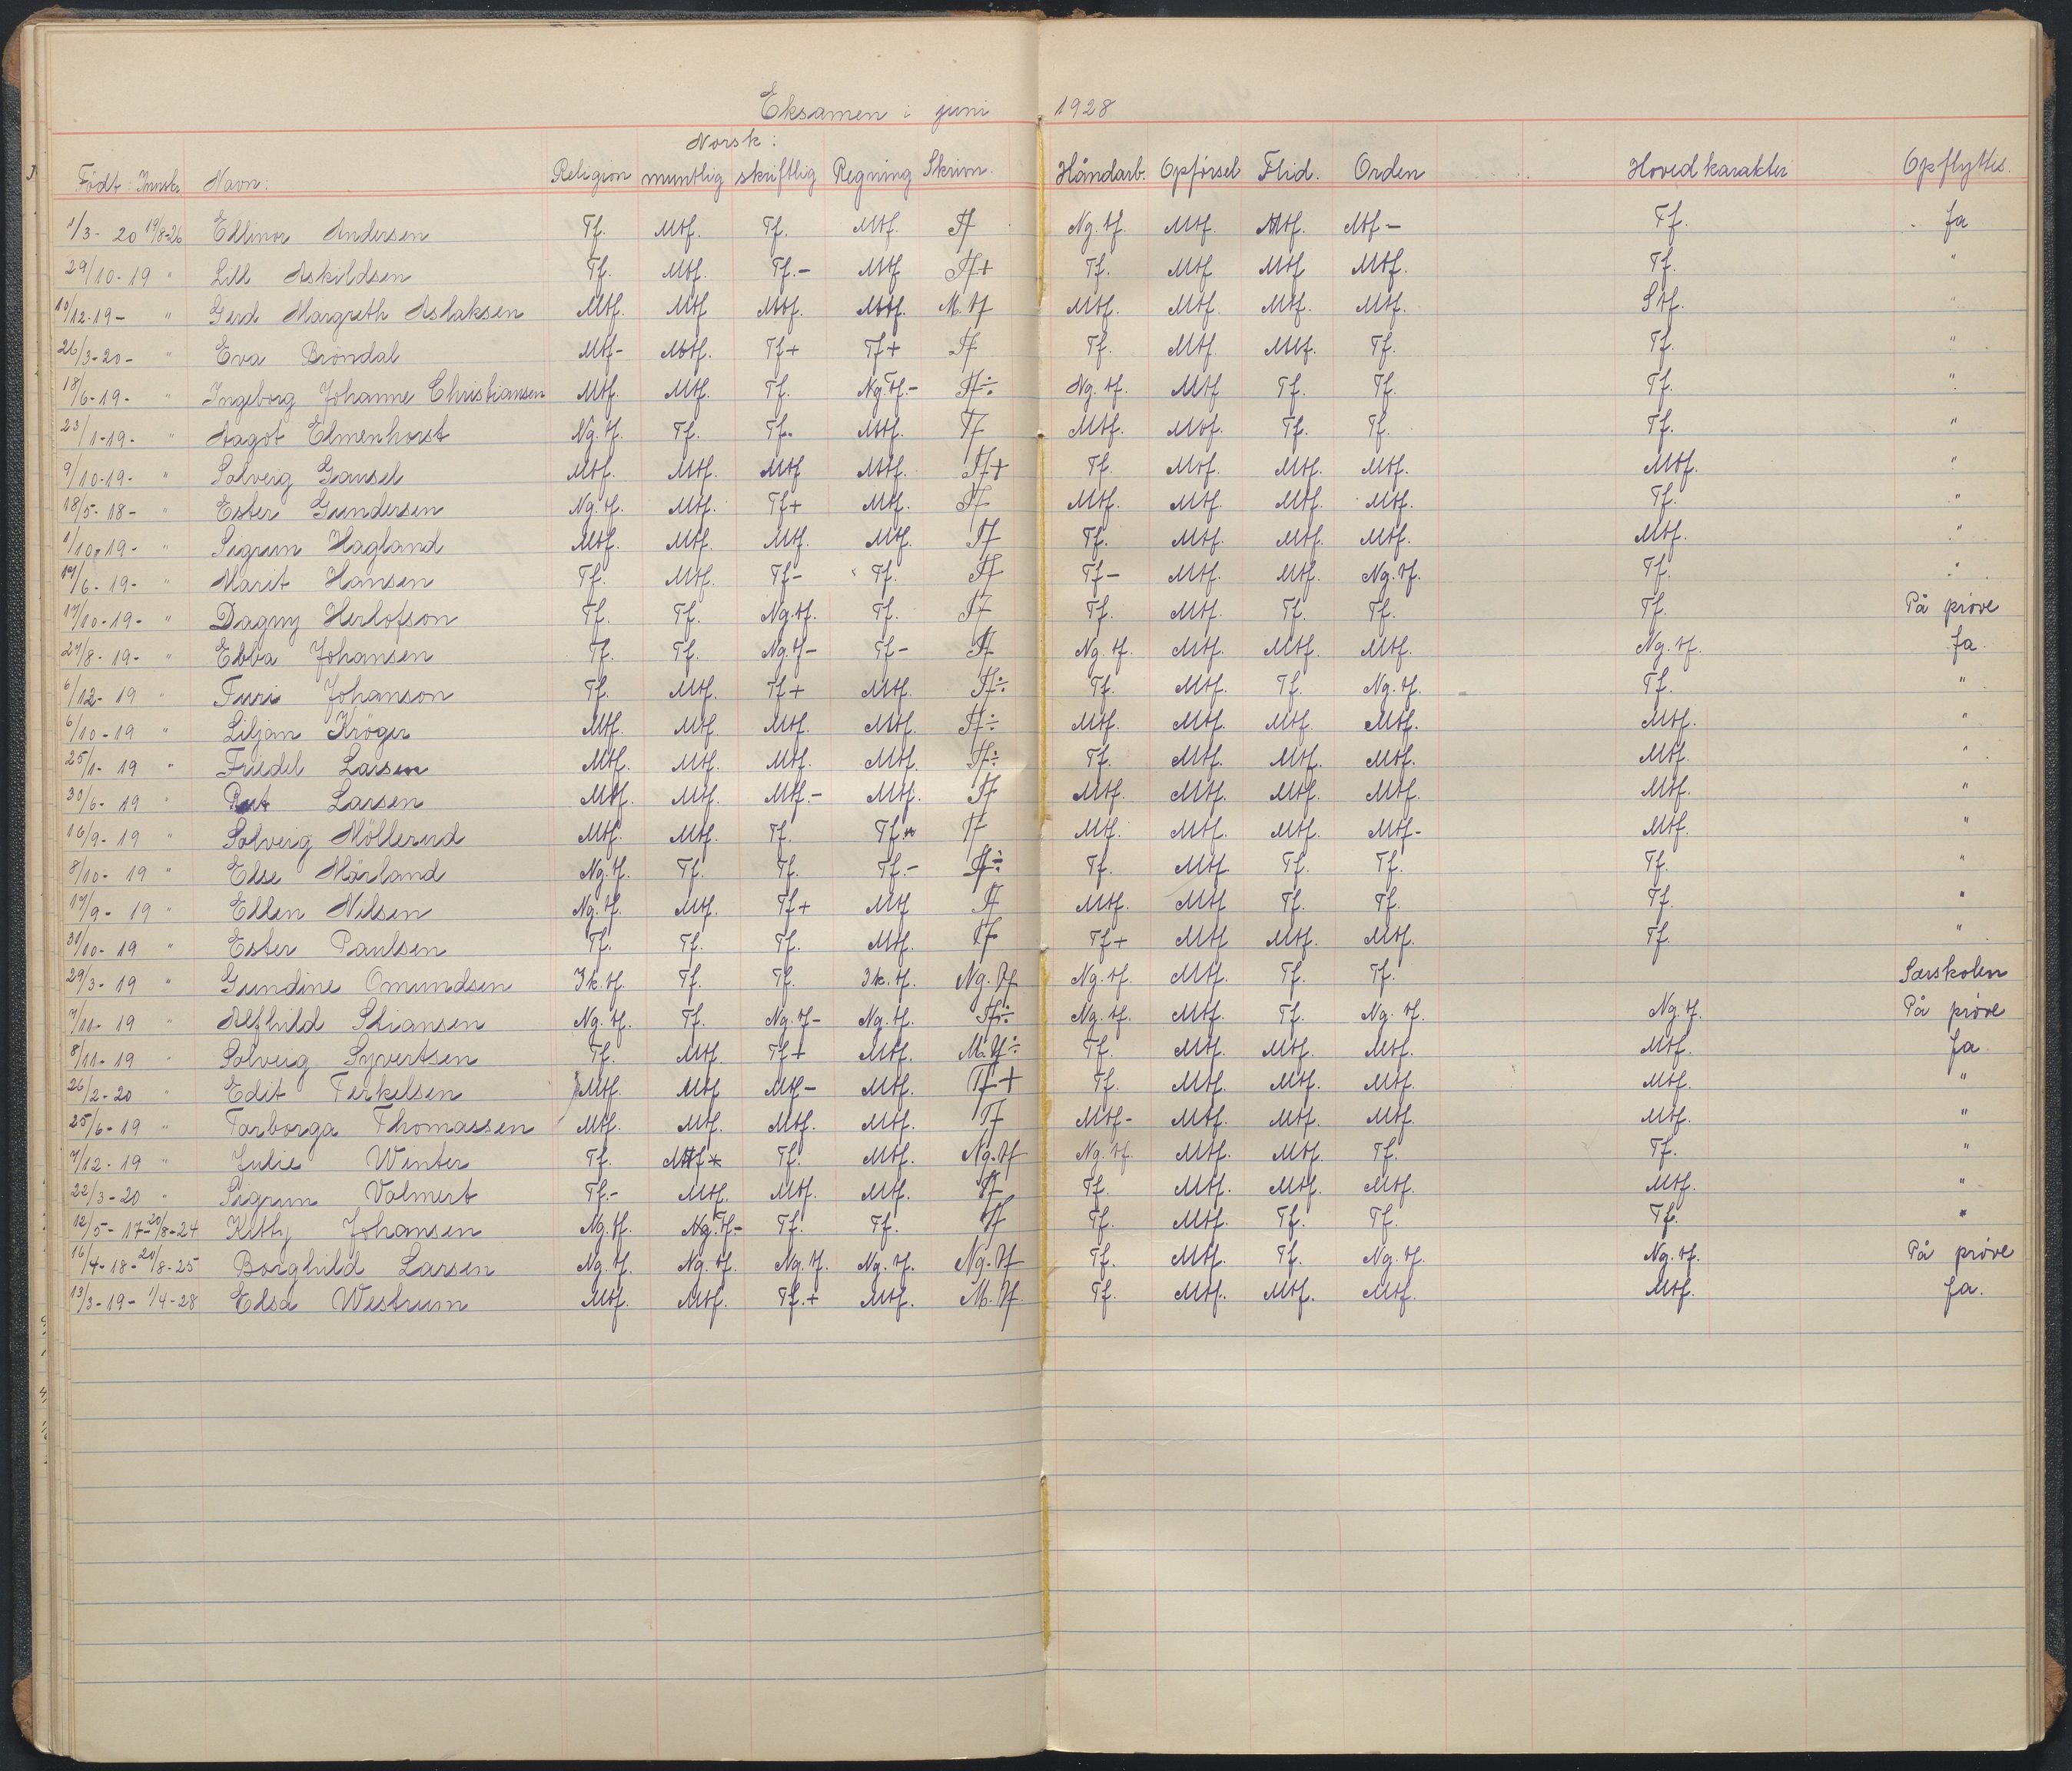 Eksamen i juni 1928
Norsk:
Født Innskr. Navn: Religion muntlig skriftlig Regning Skrivn. Håndarb. Opførsel Flid. Orden Hovedkarakter Opflyttes.
1/3- 20 19/8-26 Ellinor Andersen Tf. Mtf. Tf. Mtf. Tf Ng. tf. Mtf. Mtf. Mtf- Tf. Ja
29/10-19 " Lill Askildsen Tf. Mtf. Tf.- Mtf Tf+ Tf. Mtf Mtf Mtf. Tf. "
10/12-19- " Gerd Margreth Aslaksen Mtf. Mtf Mtf. Mtf. M.tf Mtf. Mtf. Mtf. Mtf. Stf. "
26/3-20- " Eva Bröndal Mtf- Mtf. Tf+ Tf+ Tf Tf. Mtf Mtf. Tf. Tf. "
18/6-19- " Ingeborg Johanne Christiansen Mtf. Mtf. Tf. Ng.tf.- Tf÷ Ng. tf. Mtf Tf. Tf. Tf. "
23/1-19- " Aagot Elmenhorst Ng. tf. Tf. Tf. Mtf. Tf Mtf. Mtf. Tf. Tf. Tf. "
9/10-19- " Solveig Gausel Mtf. Mtf. Mtf Mtf. Tf+ Tf. Mtf. Mtf. Mtf. Mtf. "
18/5-18- " Ester Gundersen Ng. tf. Mtf. Tf+ Mtf. Tf Mtf. Mtf. Mtf. Mtf. Tf. "
1/10-19- " Sigrun Hagland Mtf. Mtf. Mtf. Mtf. Tf Tf. Mtf. Mtf. Mtf. Mtf. "
19/6-19- " Marit Hansen Tf. Mtf. Tf- Tf. Tf Tf- Mtf. Mtf. Ng. tf. Tf. "
17/10-19- " Dagny Herlofson Tf. Tf. Ng.tf. Tf. Tf Tf. Mtf. Tf. Tf. Tf. På prøve
27/8-19- " Ebba Johansen Tf. Tf. Ng.tf- Tf- Tf Ng. tf. Mtf. Mtf. Mtf. Ng. tf. Ja.
6/12-19 " Turi Johanson Tf. Mtf. Tf+ Mtf. Tf÷ Tf. Mtf. Tf. Ng. tf. Tf. "
6/10-19 " Liljan Kröger Mtf. Mtf. Mtf. Mtf. Tf÷ Mtf. Mtf. Mtf. Mtf. Mtf. "
25/1-19 " Friedel Larsen Mtf. Mtf. Mtf. Mtf. Tf÷ Tf. Mtf. Mtf. Mtf. Mtf. "
30/6-19 " Rut Larsen Mtf. Mtf. Mtf.- Mtf. Tf Mtf. Mtf. Mtf. Mtf. Mtf. "
16/9-19 " Solveig Möllerud Mtf. Mtf. Tf. Tf. Tf Mtf. Mtf. Mtf. Mtf- Mtf. "
8/10-19 " Else Mårland Ng. tf. Tf. Tf. Tf.- Tf÷ Tf. Mtf. Tf. Tf. Tf. "
19/9-19 " Ellen Nilsen Ng. tf. Mtf. Tf+ Mtf Tf Mtf. Mtf Tf. Tf. Tf. "
31/10-19 " Ester Paulsen Tf. Tf. Tf. Mtf. Tf Tf+ Mtf Mtf. Mtf. Tf. "
29/3-19 " Gundine Omundsen Ik. tf. Tf. Tf. Ik. tf. Ng. Tf Ng. tf. Mtf. Tf. Tf. Særskolen
7/11-19 " Alfhild Stiansen Ng. tf. Tf. Ng. tf- Ng. tf. Tf÷ Ng. tf. Mtf. Tf. Ng. tf. Ng. tf. På prøve
8/11-19 " Solveig Syvertsen Tf. Mtf. Tf+ Mtf. M.tf÷ Tf. Mtf. Mtf. Mtf. Mtf. Ja
26/2-20 " Edit Terkelsen Mtf. Mtf Mtf- Mtf. Tf+ Tf. Mtf. Mtf. Mtf. Mtf. "
25/6-19 " Torborga Thomassen Mtf. Mtf. Mtf. Mtf. Tf Mtf- Mtf. Mtf. Mtf. Mtf. "
7/12-19 " Julie Winter Tf. Mtf Tf. Mtf. Ng. tf Ng. tf. Mtf. Mtf. Tf. Tf. "
22/3-20 " Sigrun Volmert Tf.- Mtf. Mtf. Mtf. Tf Tf. Mtf. Mtf. Mtf. Mtf. "
12/5-17-20/8-24 Kitty Johansen Ng. tf. Ng. tf- Tf. Tf. Tf Tf. Mtf. Tf. Tf. Tf. "
16/4-18-20/8-25 Borghild Larsen Ng. tf. Ng. tf. Ng. tf. Ng. tf. Ng. Tf Tf. Mtf. Tf. Ng. tf. Ng. tf. På prøve
13/3-19-1/4-28 Elsa Westrum Mtf. Mtf. Tf.+ Mtf. M. Tf. Tf. Mtf. Mtf. Mtf. Mtf. Ja.